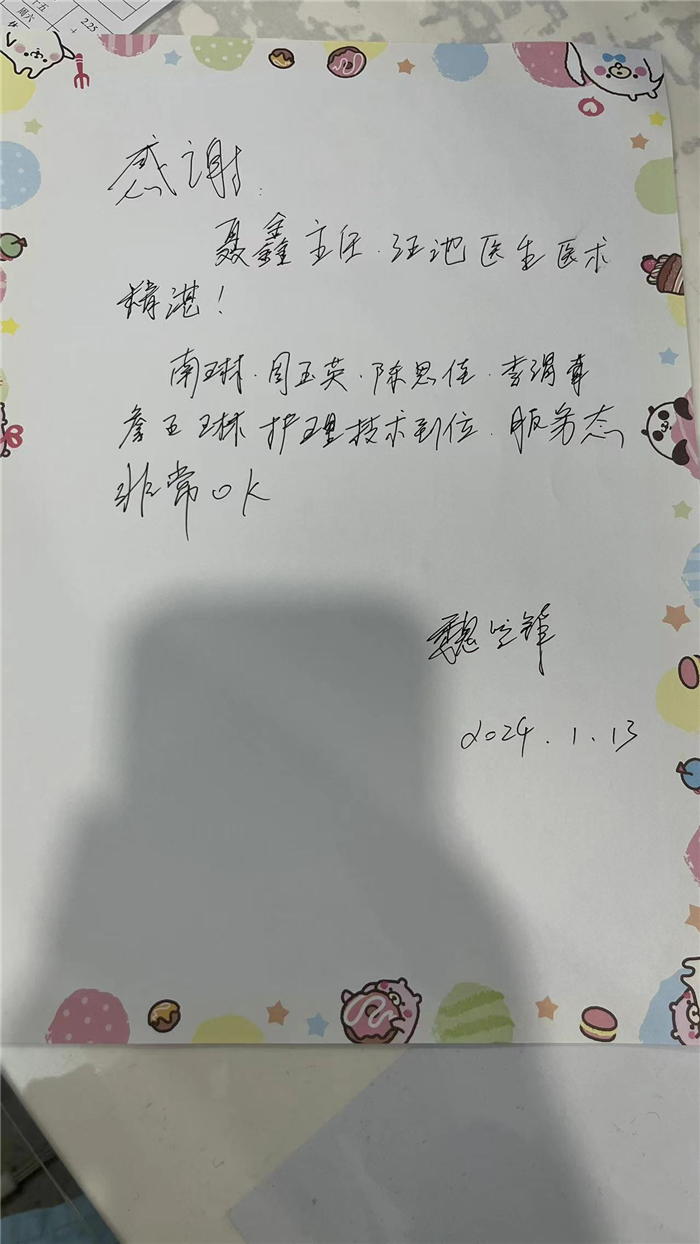 十五
周六
2.25
4
感谢:
聂鑫主任.汪池医生医术
精湛!
南琳.周玉英.陈思佳.李渭
詹玉琳护理技术到位.服务态
非常OK
魏
2024.1.13